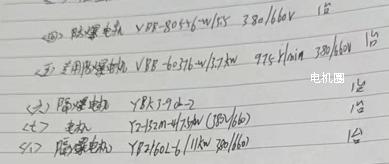 (四) 防爆电机 YBB-80S4-6-W/5.5 380/660V 1台
(五) 差用防爆电机 YBB-603I6-W/3.7kw 975r/min 380/660V 1台
(六) 隔爆电机 YBK3-90L-2 1台
(七) 电机 Y2-132M-4/7.5kw (380V/660) 1台
(八) 隔爆电机 YB2160L-6/11kw 380/660) 1台
电机圈